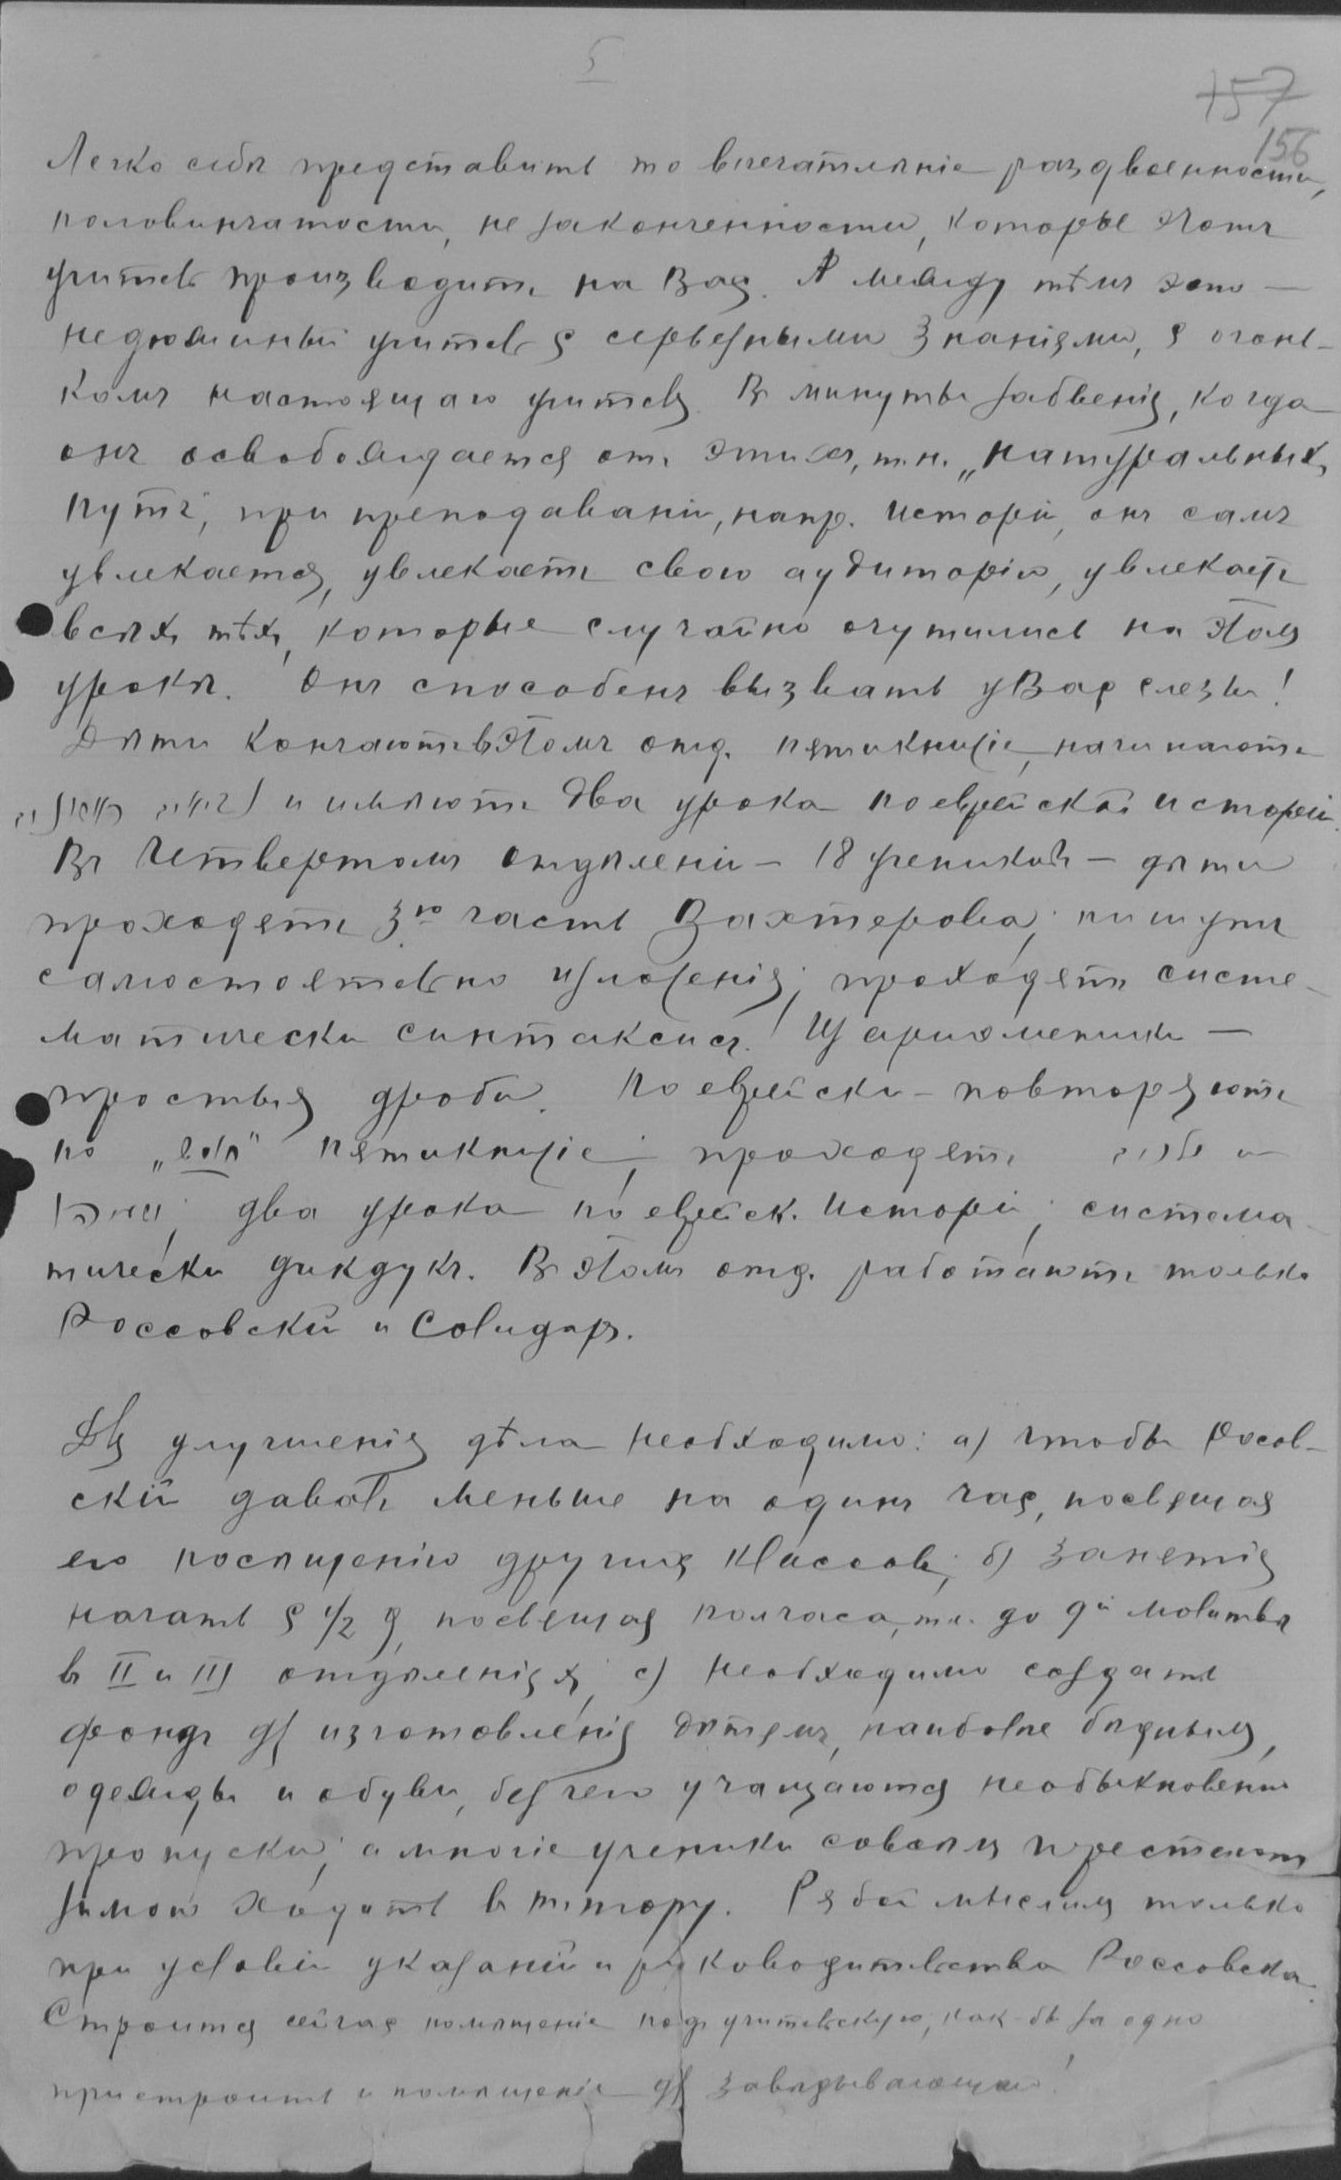 5
157
156
Легко себѣ представить то впечатлѣніе раздвоенности,
половинчатости, незаконченности, которые этотъ
учитель производитъ на Васъ. А между тѣмъ это —
недюжинный учитель съ серьезными знаніями, съ огонь-
комъ настоящаго учителя. Въ минуты забвенія, когда
онъ освобождается отъ этихъ, т.н. „натуральныхъ
путъ", при преподаваніи, напр. исторіи, онъ самъ
увлекается, увлекаетъ свою аудиторію, увлекаетъ
всѣхъ тѣхъ, которые случайно очутились на этомъ
урокѣ. Онъ способенъ вызвать у Васъ слезы!
Дѣти кончаютъ въ этомъ отд. пятикнижіе, начинаютъ
и имѣютъ два урока по еврейской исторіи.
Въ четвертомъ отдѣленіи — 18 учениковъ — дѣти
проходятъ 3ю часть Вахтерова; пишутъ
самостоятельно изложенія; проходятъ систе-
матически синтаксисъ! Изъ ариѳметики —
простыя дроби. По еврейски — повторяютъ
по „ пятикнижіе; проходятъ и
два урока по еврейск. исторіи; система-
тически дикдукъ. Въ этомъ отд. работаютъ только
Россовскій и Солидаръ.
Для улучшенія дѣла необходимо: а) чтобы Росов-
скій давалъ меньше на одинъ часъ, посвящая
его посѣщенію другихъ классовъ; б) занятія
начать съ ½ 9, посвящая полчаса, т.е. до 9и молитвѣ
въ II и III отдѣленіяхъ; с) необходимо создать
фондъ для изготовленія дѣтямъ, наиболѣе бѣднымъ,
одежды и обуви, безъ чего учащаются необыкновенно
пропуски; а многіе ученики совсѣмъ перестаютъ
зимой ходить въ т-тору. Рядъ мыслимъ только
при условіи указаній и руководительства Россовска.
Строится сейчасъ помѣщеніе подъ учительскую, какъ-бы за одно
пристроить и помѣщеніе для завѣдывающаго!